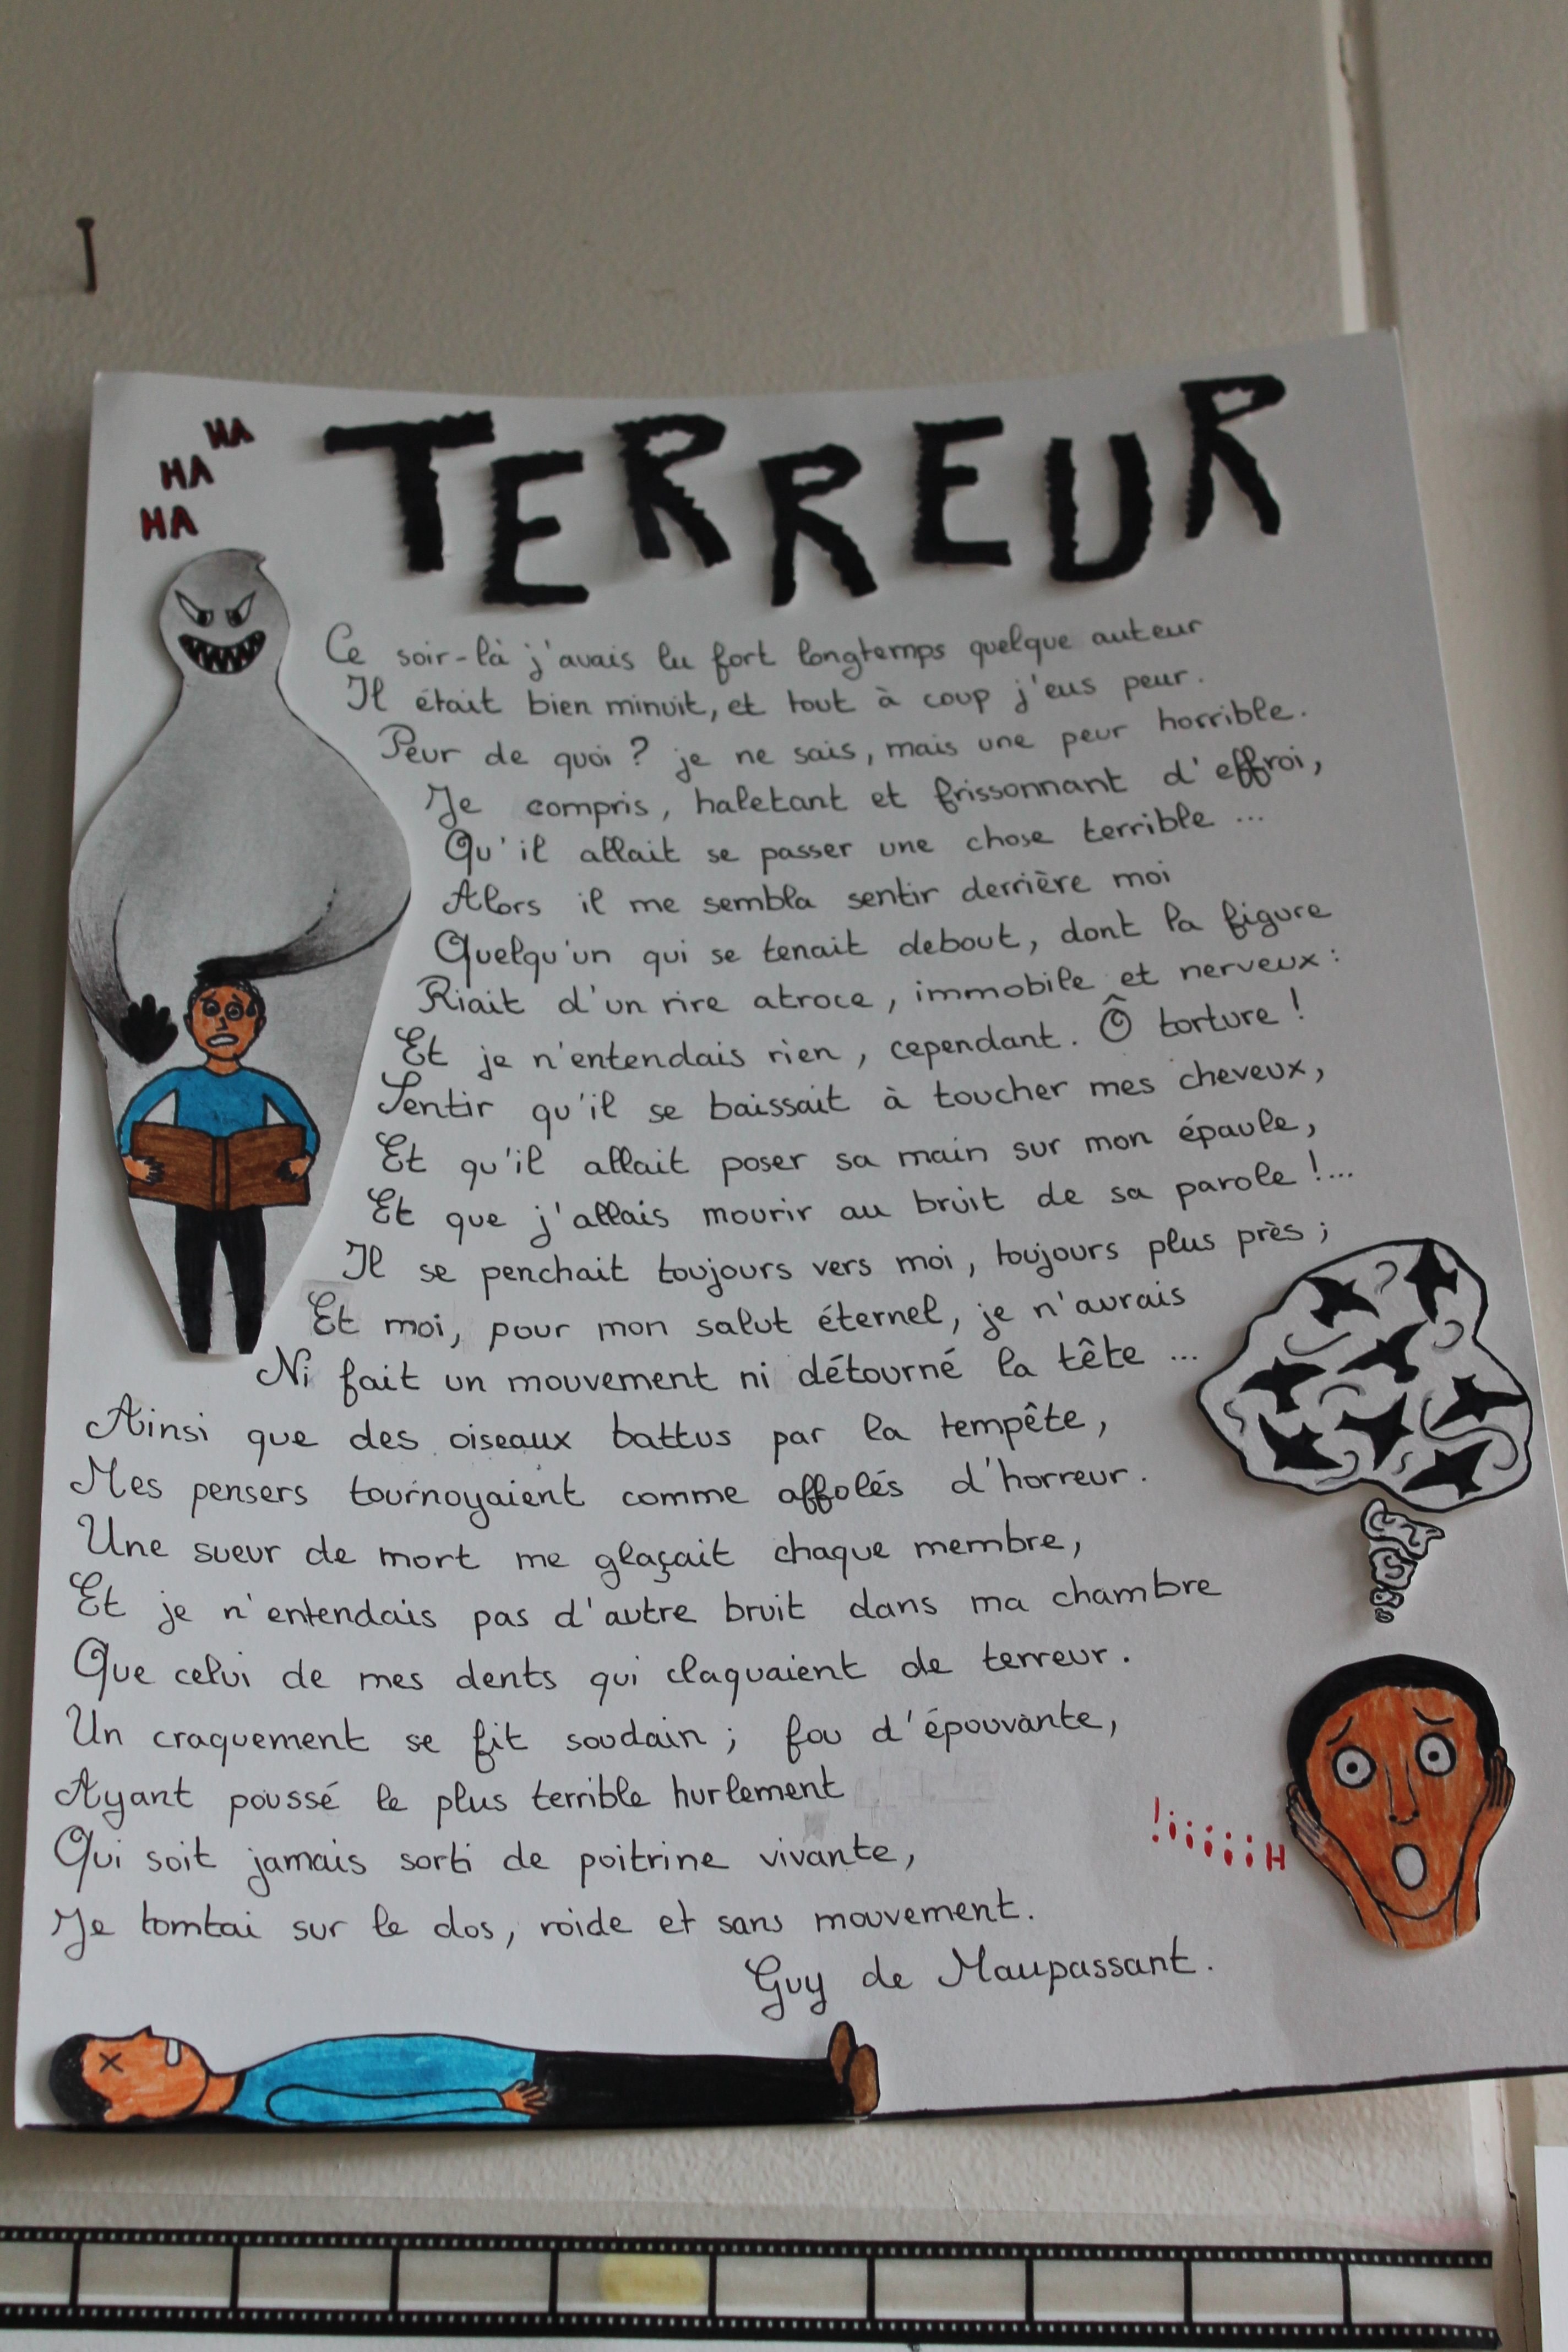 HA
HA
HA
TERREUR
Ce soir-là j'avais lu fort longtemps quelque auteur
Il était bien minuit, et tout à coup j'eus peur.
Peur de quoi ? je ne sais, mais une peur horrible.
Je compris, haletant et frissonnant d'effroi,
Qu'il allait se passer une chose terrible ...
Alors il me sembla sentir derrière moi
Quelqu'un qui se tenait debout, dont la figure
Riait d'un rire atroce, immobile et nerveux :
Et je n'entendais rien, cependant. Ô torture !
Sentir qu'il se baissait à toucher mes cheveux,
Et qu'il allait poser sa main sur mon épaule,
Et que j'allais mourir au bruit de sa parole !...
Il se penchait toujours vers moi, toujours plus près ;
Et moi, pour mon salut éternel, je n'aurais
Ni fait un mouvement ni détourné la tête ...
Ainsi que des oiseaux battus par la tempête,
Mes pensers tournoyaient comme affolés d'horreur.
Une sueur de mort me glaçait chaque membre,
Et je n'entendais pas d'autre bruit dans ma chambre
Que celui de mes dents qui claquaient de terreur.
Un craquement se fit soudain ; fou d'épouvante,
Ayant poussé le plus terrible hurlement
Qui soit jamais sorti de poitrine vivante,
Je tombai sur le dos, roide et sans mouvement.
Guy de Maupassant.
!iiiiiiH